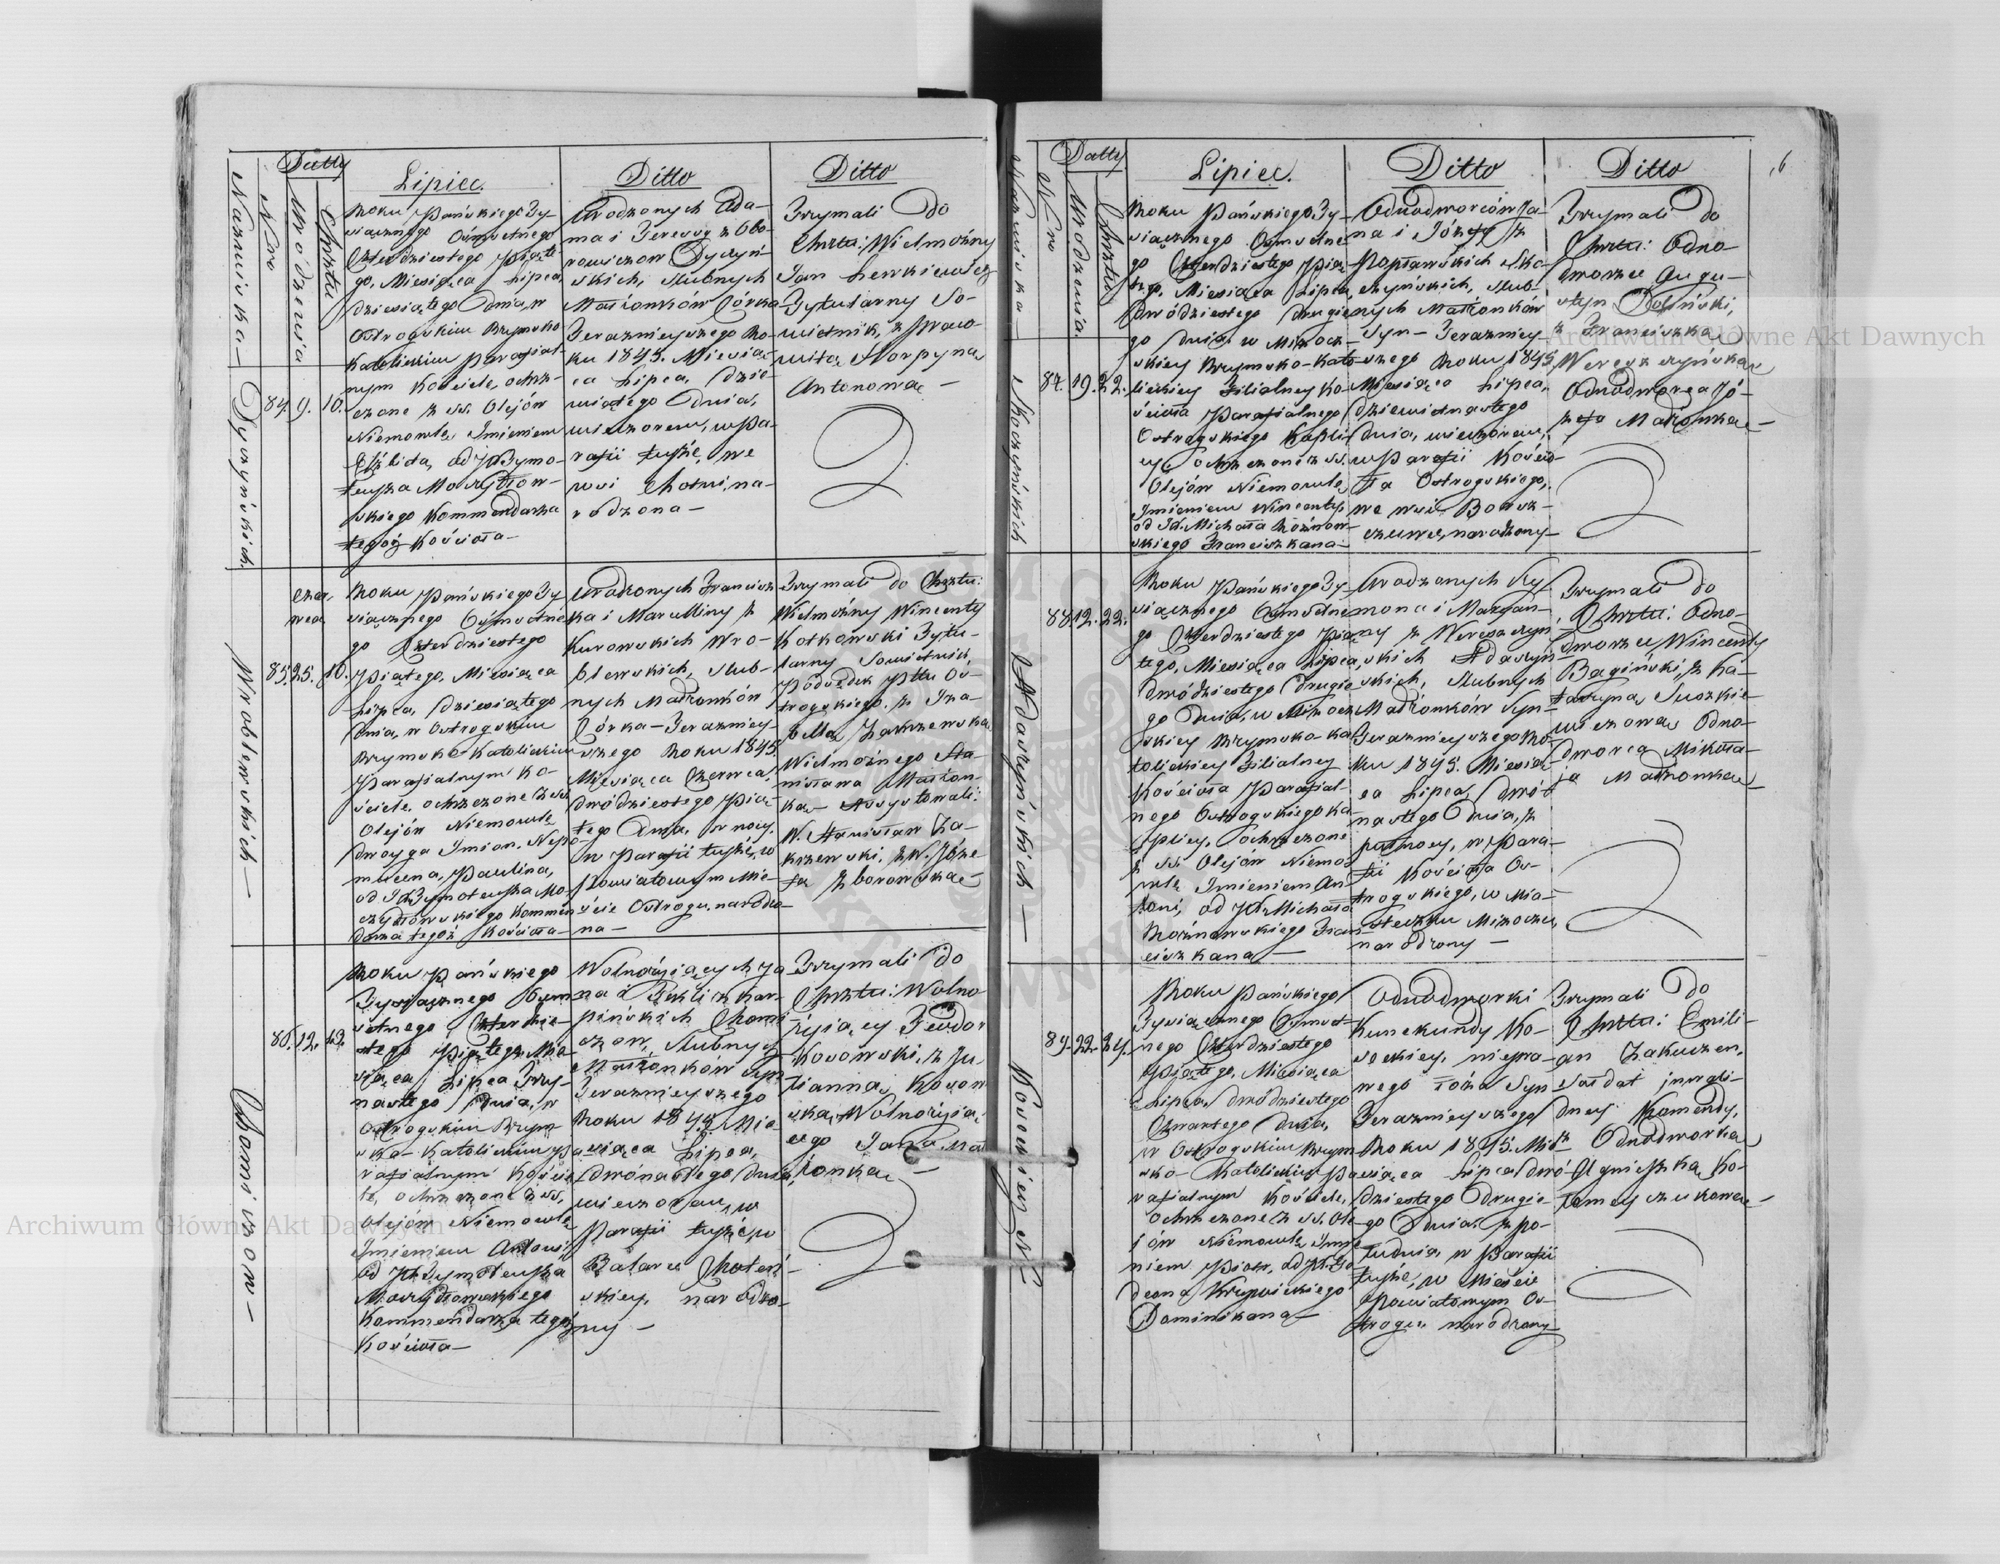 Datty
Lipiec.
Ditto
Ditto
Nazwiska —
Nro
Urodzenia
Chrztu
Dyczyńskich.
84. 9. 10.
Roku Pańskiego Ty-
siącznego Ośmsetnego
Czterdziestego Piąte-
go, Miesiąca Lipca,
dziesiątego Dnia, w
Ostrogskim Rzymsko
Katolickim Parafial-
nym Kościele, ochrz-
czone z SS. Olejów
Niemowle, Imieniem
Elżbieta, od
Kommendarza
tegoż Kościoła —
Urodzonych Ada-
ma i Teressy z Obo-
rowiczow Dyczyń-
skich, Slubnych
Małżonków Córka
Terazniejszego Ro-
ku 1845. Miesią-
ca Lipca, dzie-
wiątego Dnia,
wieczorem, w Pa-
rafii tutejszey, we
wsi
rodzona —
Trzymali Do
Chrztu: Wielmożny
Jan Lewkiewicz
Tytularny So-
wietnik, z Prawo-
witą
Antonową —
Wroblewskich —
Czer.
wca
85. 25. 10.
Roku Pańskiego Ty-
siącznego Ośmsetne
go Czterdziestego
Piątego, Miesiąca
Lipca, dziesiątego
Dnia, w Ostrogskim
Rzymsko-Katolickim
Parafialnym Ko-
ściele, ochrzczone z SS.
Olejów Niemowle
dwoyga Imion, Nepo-
mucena, Paulina,
Kommen
darza tegoż Kościoła —
Urodzonych Francisz
ka i Marcelliny z
Kurowskich Wro-
blewskich, slub-
nych Małżonków
Córka — Terazniey-
szego Roku 1845
Miesiąca Czerwca,
dwódziestego Pią-
tego Dnia, w nocy,
w Parafii tutejszey, w
Powiatowym Mie-
ście Ostrogu, narodzo-
na —
Trzymali do Chrztu:
Wielmożny Wincenty
Kotkowski Tytu-
larny Sowietnik,
Podsędek Pttu Os-
trogskiego. z Iza-
bellą Zakrzewską
Wielmożnego Sta-
nisława Małżon-
ką — Assystowali:
W. Stanisław Za-
krzewski, z W. Józe-
fą Zborowską —
86. 12. 13.
Roku Pańskiego
Tysiącznego Ośm
setnego Czterdzie-
stego Piątego Mie-
siąca Lipca Trzy-
nastego Dnia, w
Ostrogskim Rzym
sko-Katolickim Pa
rafialnym Koście
le, ochrzczone z SS.
Olejów Niemowle
Imieniem Antoni,
Kommendarza tegoż
Kościoła —
Wolnożyjących Ja
na i Tekli z Kar-
pińskich
slubnych
Małżonków Syn
Terazniejszego
Roku 1845 Mie-
siąca Lipca,
dwónastego Dnia,
wieczorem, w
Parafii tutejszey w
narodzo-
ny —
Trzymali do
Chrztu: Wolno
żyjący Teodor
Kosowski, z Ju-
lianną Kosow
ską, Wolnożyją-
cego Jana, Mał
żonką —
Datty
Lipiec.
Ditto
Ditto
Nazwiska —
Nro
Urodzenia.
Chrztu
Skoczyńskich
87. 19. 22.
Roku Pańskiego Ty-
siącznego Ośmsetne
go Czterdziestego Pią-
tego, Miesiąca Lipca,
dwódziestego drugie
go Dnia, w Mizocz-
skiey Rzymsko-Kato-
lickiey Filialney Ko-
ścioła Parafialnego
Ostrogskiego Kapli
cy, ochrzczone z SS.
Olejów Niemowle,
Imieniem Wincenty,
od Jx. Michała Rożnow-
skiego Franciszkana —
Odnodworców Ja-
na i Józefy z
Skо-
czyńskich, Slub-
nych Małżonków
Syn — Terazniey-
szego Roku 1845
Miesiąca Lipca,
dziewietnastego
Dnia, wieczorem,
w Parafii Kościo-
ła Ostrogskiego,
we wsi
narodzony —
Trzymali Do
Chrztu: Odno-
dworzec Augu-
styn
z Franciszką
Wereszczyńską
Odnodworca Jó-
zefa Małżonką —
Adaszyńskich —
88. 12. 22.
Roku Pańskiego Ty-
siącznego Ośmsetne
go Czterdziestego Pią-
tego, Miesiąca Lipca,
dwódziestego drugie
go Dnia, w Mizocz-
skiey Rzymsko-Ka
tolickiey Filialney
Kościoła Parafial-
nego Ostrogskiego Ka
plicy, ochrzczone
z SS. Olejów Niemo
wle Imieniem An
toni, od Jx. Michała
Rożnowskiego Fran
ciszkana —
Urodzonych Szy-
mona i Maryan-
ny z Wereszczyń
skich Adaszyń-
skich, Slubnych
Małżonków Syn —
Terazniejszego Ro-
ku 1845. Miesią-
ca Lipca, dwó-
nastego Dnia, z
pułnocy, w Para-
fii Kościoła Os-
trogskiego, w Mia-
steczku Mizoczu,
narodzony —
Trzymali Do
Chrztu: Odno-
dworzec Wincenty
Bagiński, z Ka-
tarzyną Suszkie-
wiczową Odno-
dworca Mikoła-
ja Małżonką —
89. 22. 24.
Roku Pańskiego
Tysiącznego Ośmset-
nego Czterdziestego
Piątego, Miesiąca
Lipca, dwódziestego
Czwartego Dnia,
w Ostrogskim Rzym
sko-Katolickim Pa
rafialnym Kościele,
ochrzczone z SS. Ole-
jów Niemowle Imie
niem Piotr, od
Dominikana —
Odnodworki
Kunekundy Ko-
sockiey, niepra-
wego łoża Syn
Terazniejszego
Roku 1845. Mie-
siąca Lipca dwó-
dziestego drugie-
go Dnia, z po-
łudnia, w Parafii
tutejszey, w Mieście
Powiatowym Os-
trogu narodzony —
Trzymali Do
Chrztu: Emili-
an
Sołdat inwali-
dney Komendy,
z Odnodworką
Agnieszką
Archiwum Główne Akt Dawnych
Archiwum Główne Akt Dawnych